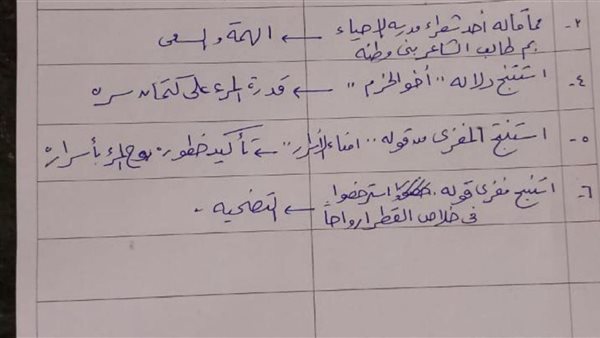 ٣- مما قاله أحد شعراء مدرسة الإحياء ← الهمة والسعى
بم طالب الشاعر بنى وطنه
٤- استنتج دلالة "أخو الحزم" ← قدرة المرء على كتمان سره
٥- استنتج المغزى من قوله "افشاء الأسرار" ← تأكيد خطورة بوح المرء بأسراره
٦- استنتج مغزى قوله. استرخصوا ← التضحية.
فى خلاص القطر ارواحاً